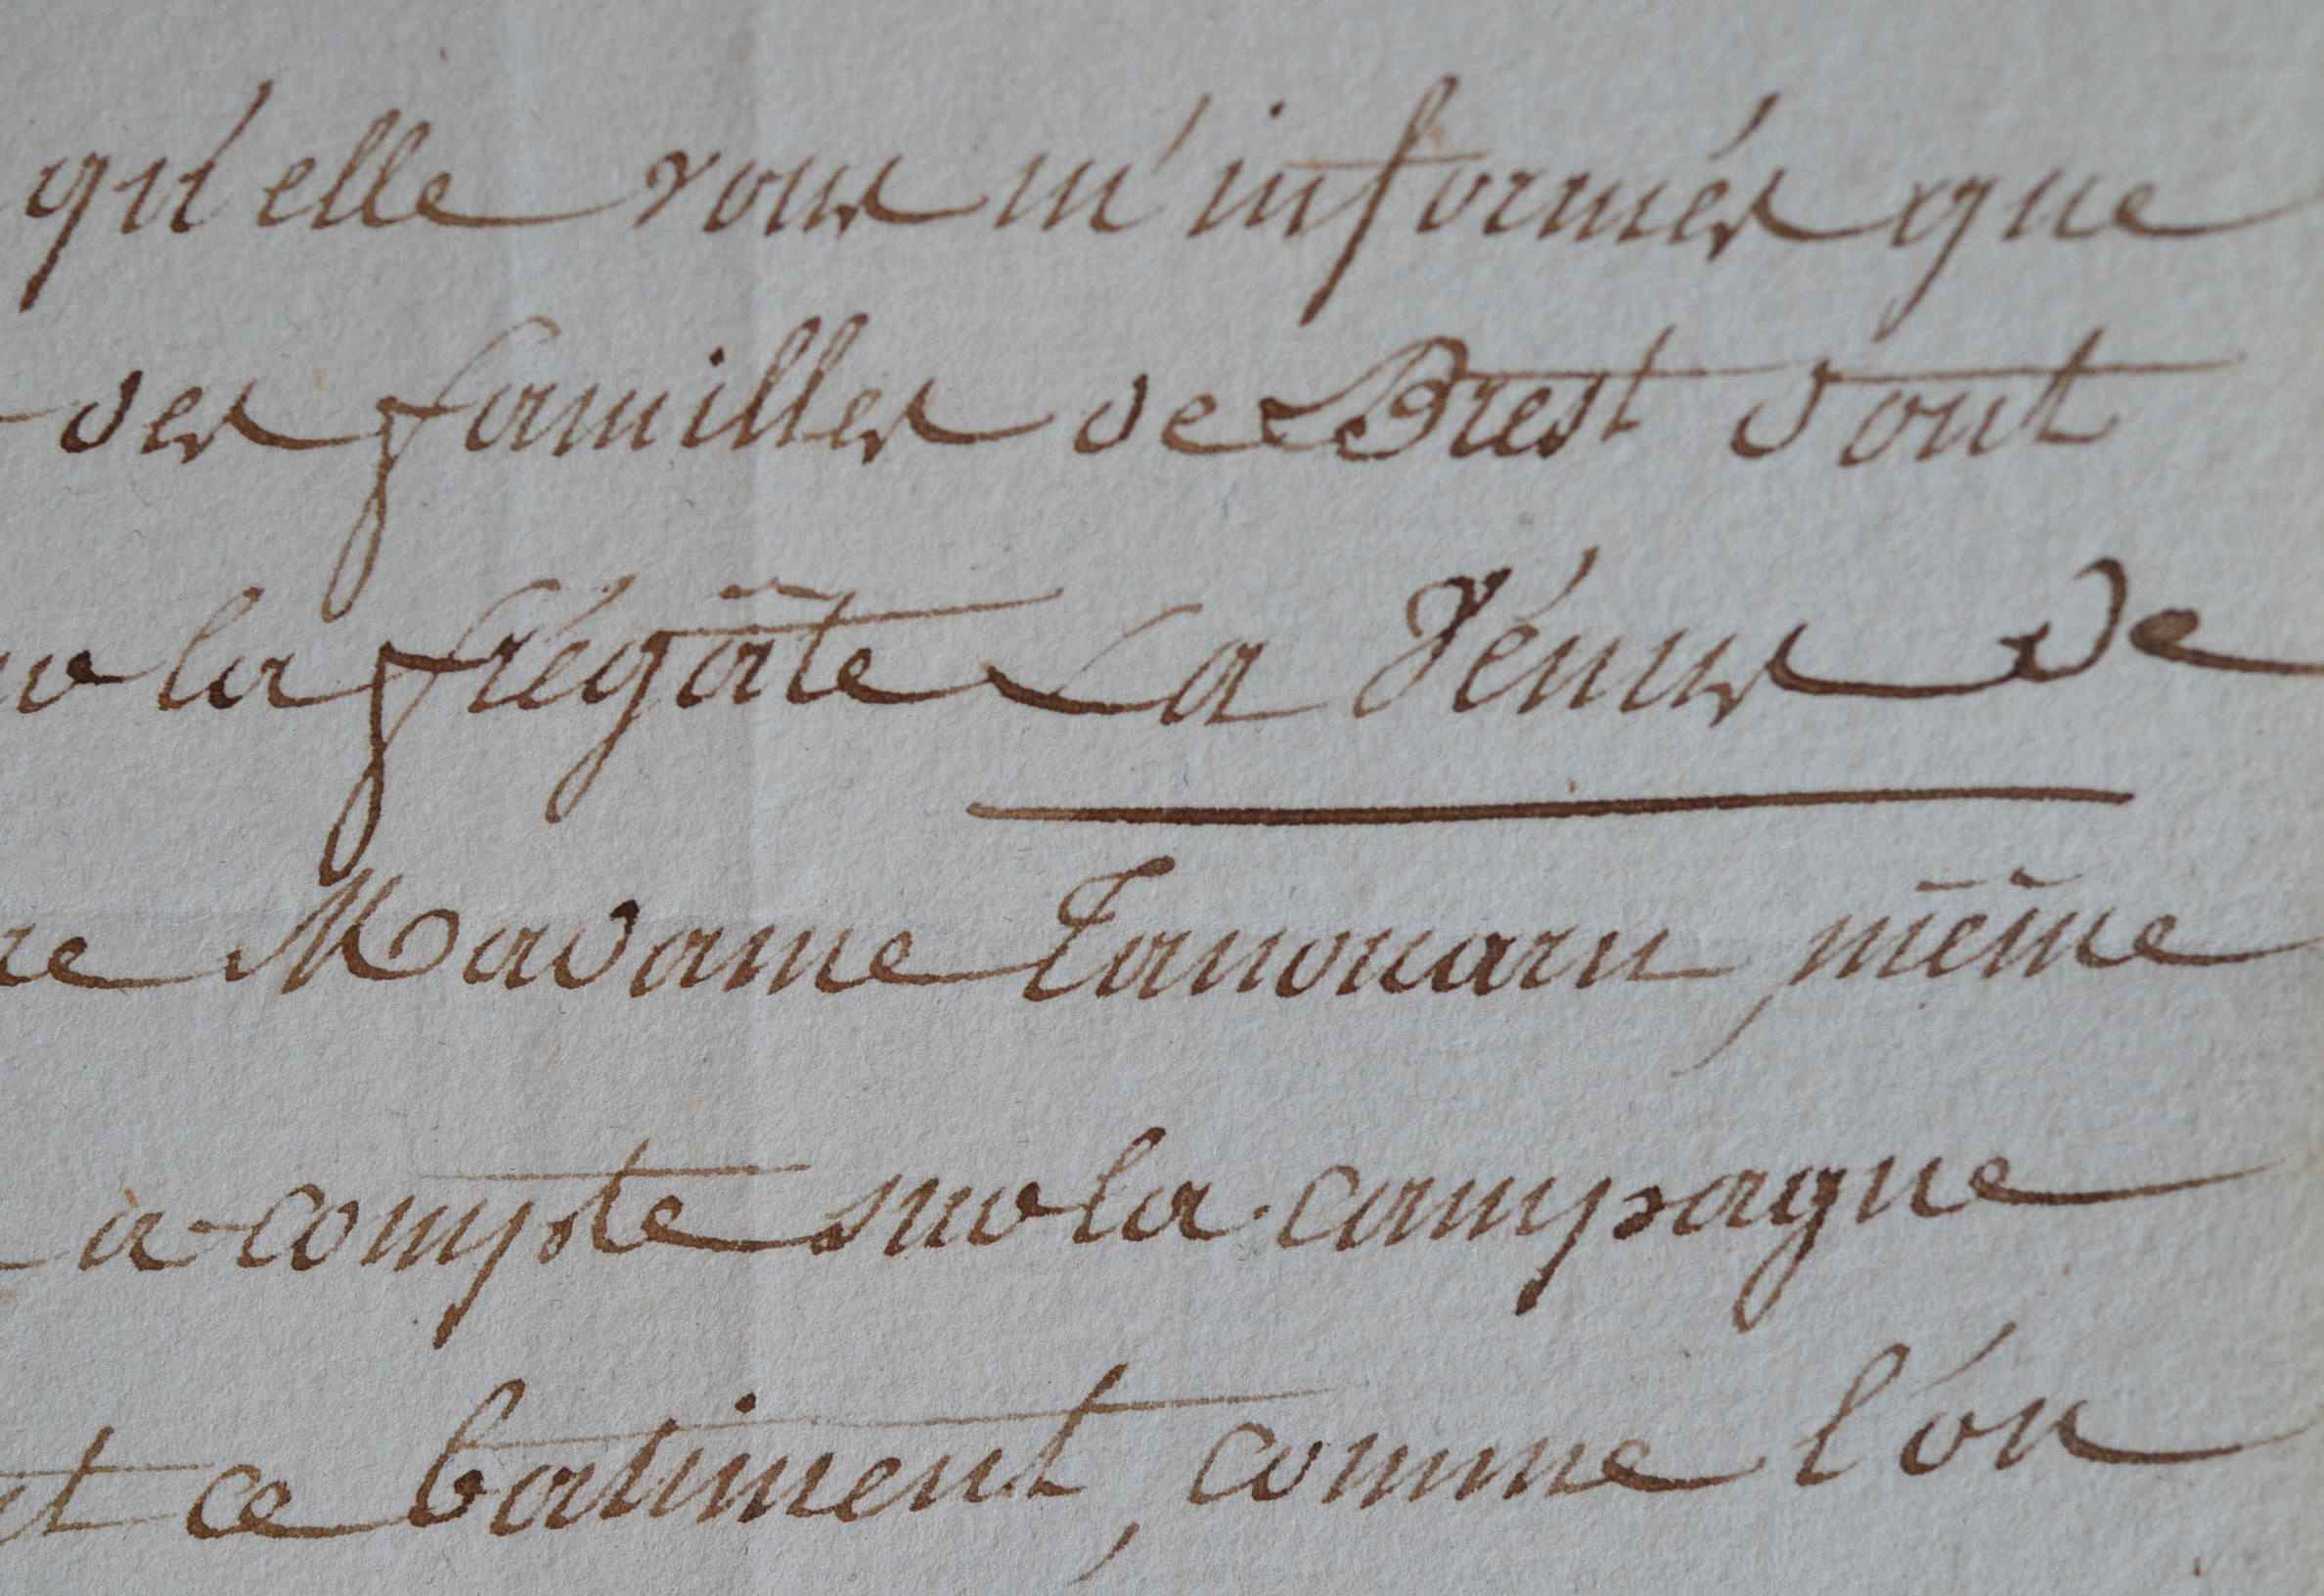 qu'elle vous m'informés que
des familles de Brest dont
la frégâte La Vénus de
Madame Tanouarn, même
à-compte sur la campagne
ce batiment, comme l'on